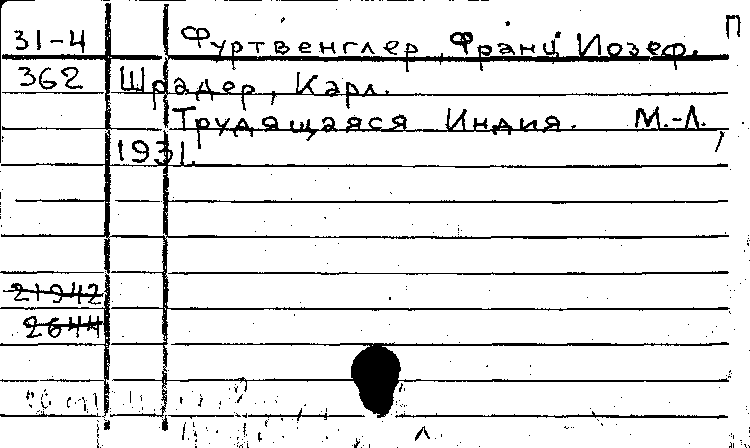 П
31-4 Фуртвенглер, Франц Иозеф.
362 Шрадер, Карл.
Трудящаяся Индия. М.-Л.,
1931.
21942
2644